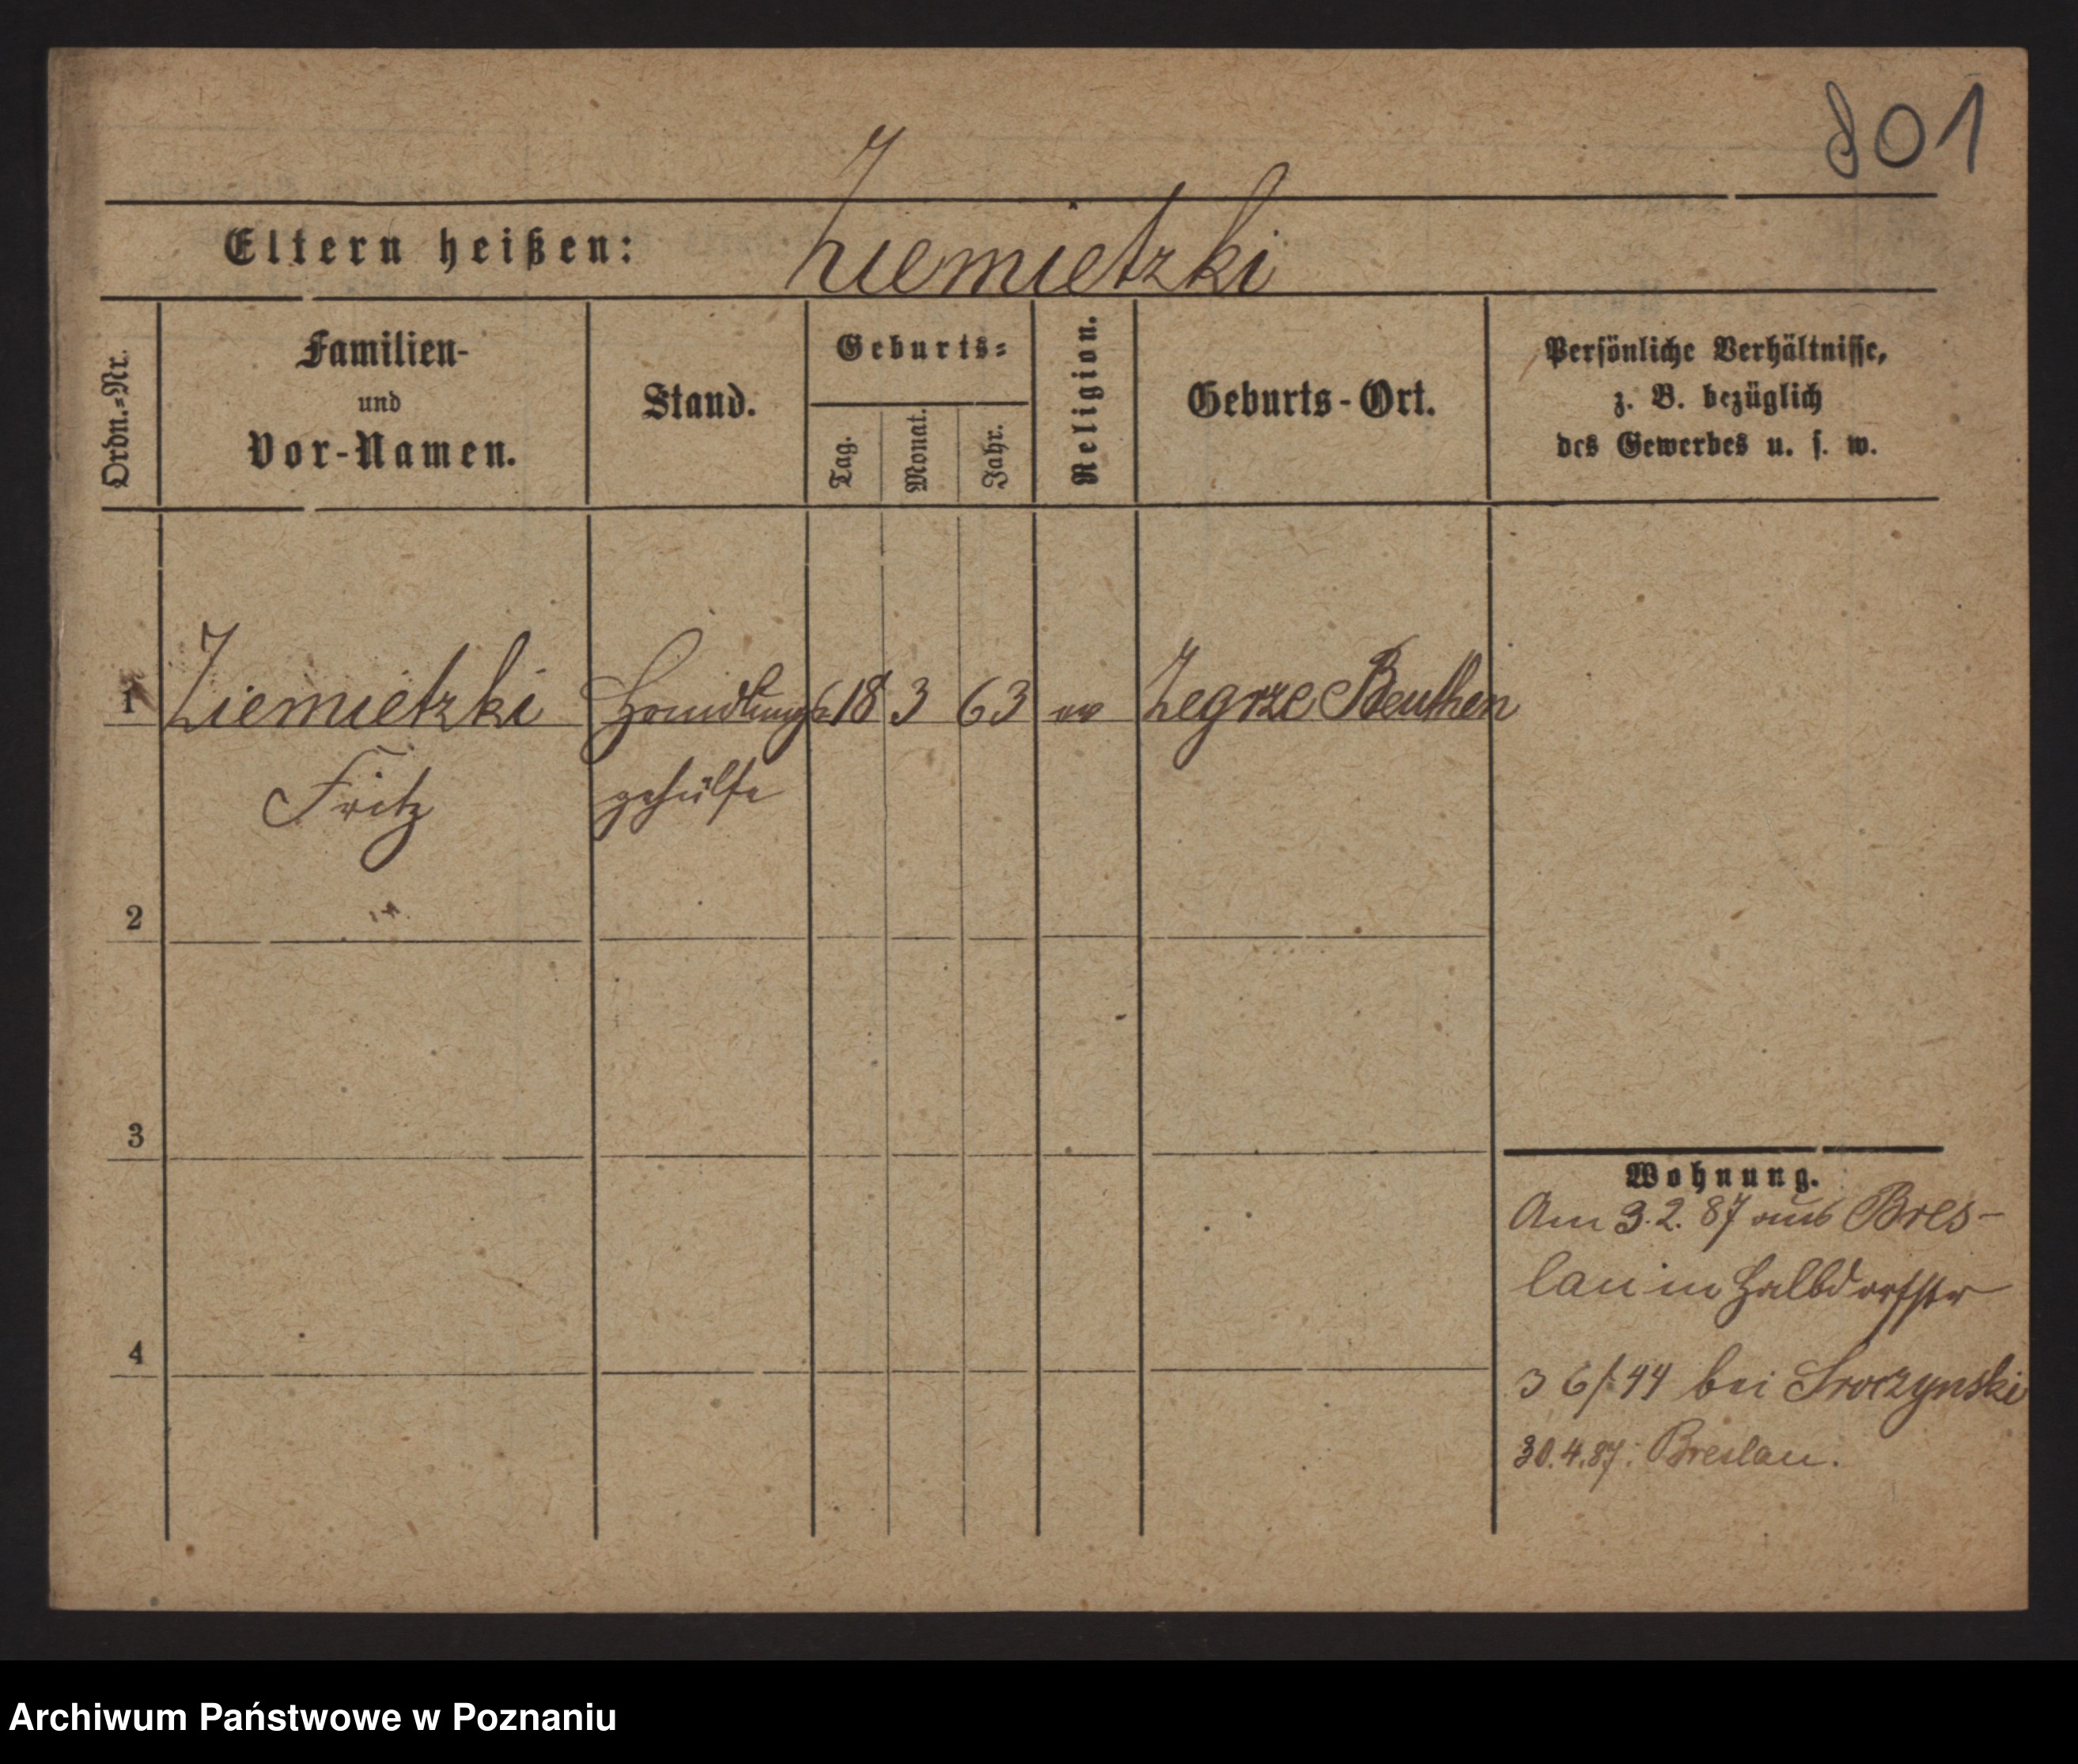 801
Eltern heißen: Ziemietzki
Ordn.-Nr.
Familien-
und
Vor-Namen.
Stand.
Geburts-
Tag.
Monat.
Jahr.
Religion.
Geburts-Ort.
Persönliche Verhältnisse,
z. B. bezüglich
des Gewerbes u. s. w.
1 Ziemietzki Handlungs 18 3 63 ev Zegrze Beuthen
Fritz gehülfe
2
3
4
Wohnung.
Am 3.2.87 aus Bres-
lau in Halbdorfstr
36/44 bei Sroczynski
30.4.87: Breslau.
Archiwum Państwowe w Poznaniu